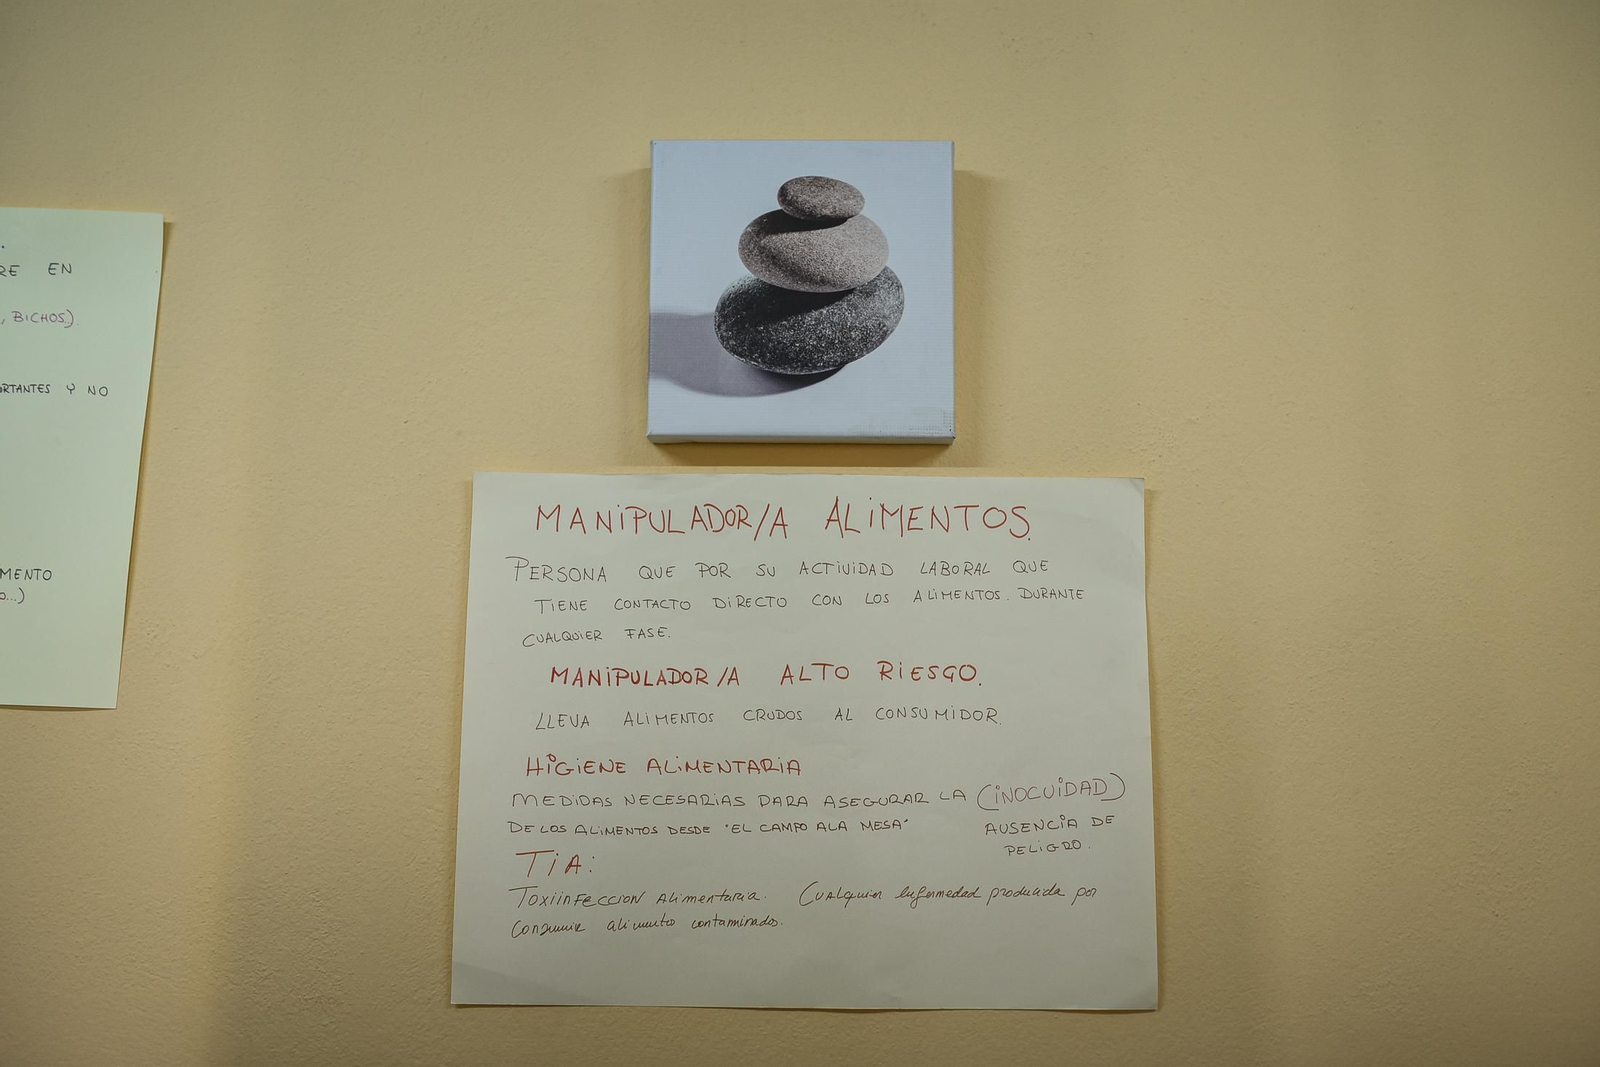 RE EN
, BICHOS..).
ORTANTES Y NO
MENTO
o...)
MANiPULADOR/A ALiMENTOS.
PERSONA QUE POR SU ACTIVIDAD LABORAL QUE
TIENE CONTACTO DIRECTO CON LOS ALIMENTOS. DURANTE
CUALQUIER FASE.
MANiPULADOR/A ALTO RiESGO.
LLEVA ALIMENTOS CRUDOS AL CONSUMIDOR.
HiGiENE ALiMENTARIA
MEDIDAS NECESARIAS PARA ASEGURAR LA (iNOCUiDAD)
DE LOS ALIMENTOS DESDE "EL CAMPO A LA MESA"
AUSENCiA DE
PELiGRO.
TiA:
Toxiinfeccion Alimentaria. Cualquier enfermedad producida por
consumir alimento contaminados.